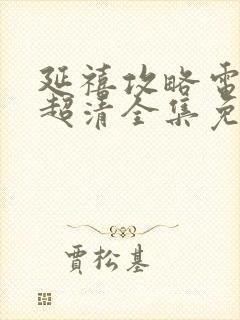 延禧攻略電
超清全集免
賈松基